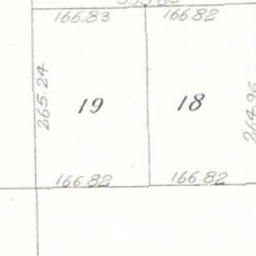 166.83 166.82
265.24
19 18
166.82 166.82